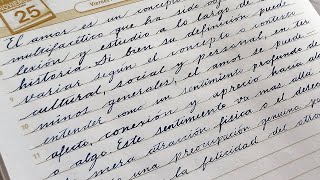 25
Viernes
El amor es un concepto
multifacético que ha sido
lexión y estudio a lo largo de
historia. Si bien su definición puede
variar según el concepto o contexto
cultural, social y personal, en tér
minos generales, el amor se puede
entender como un sentimiento profundo de
afecto, conexión y aprecio hacia
o algo. Este sentimiento va más allá
mera atracción física o el deseo
una preocupación genuina
la felicidad del otro